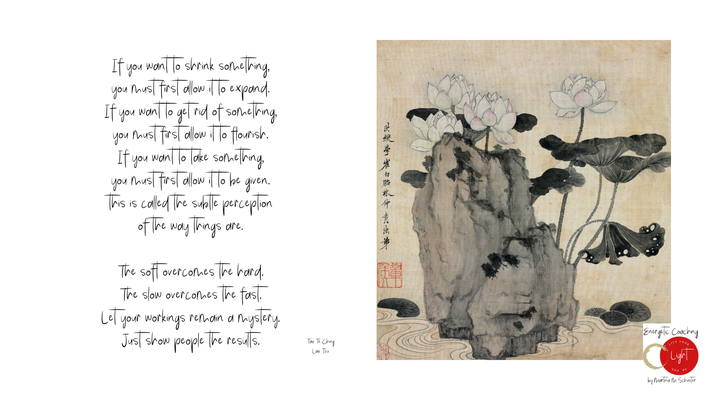 If you want to shrink something,
you must first allow it to expand.
If you want to get rid of something,
you must first allow it to flourish.
If you want to take something,
you must first allow it to be given.
This is called the subtle perception
of the way things are.
The soft overcomes the hard.
The slow overcomes the fast.
Let your workings remain a mystery.
Just show people the results.
Tao Te Ching
Lao Tzu
Energetic Coaching
Light